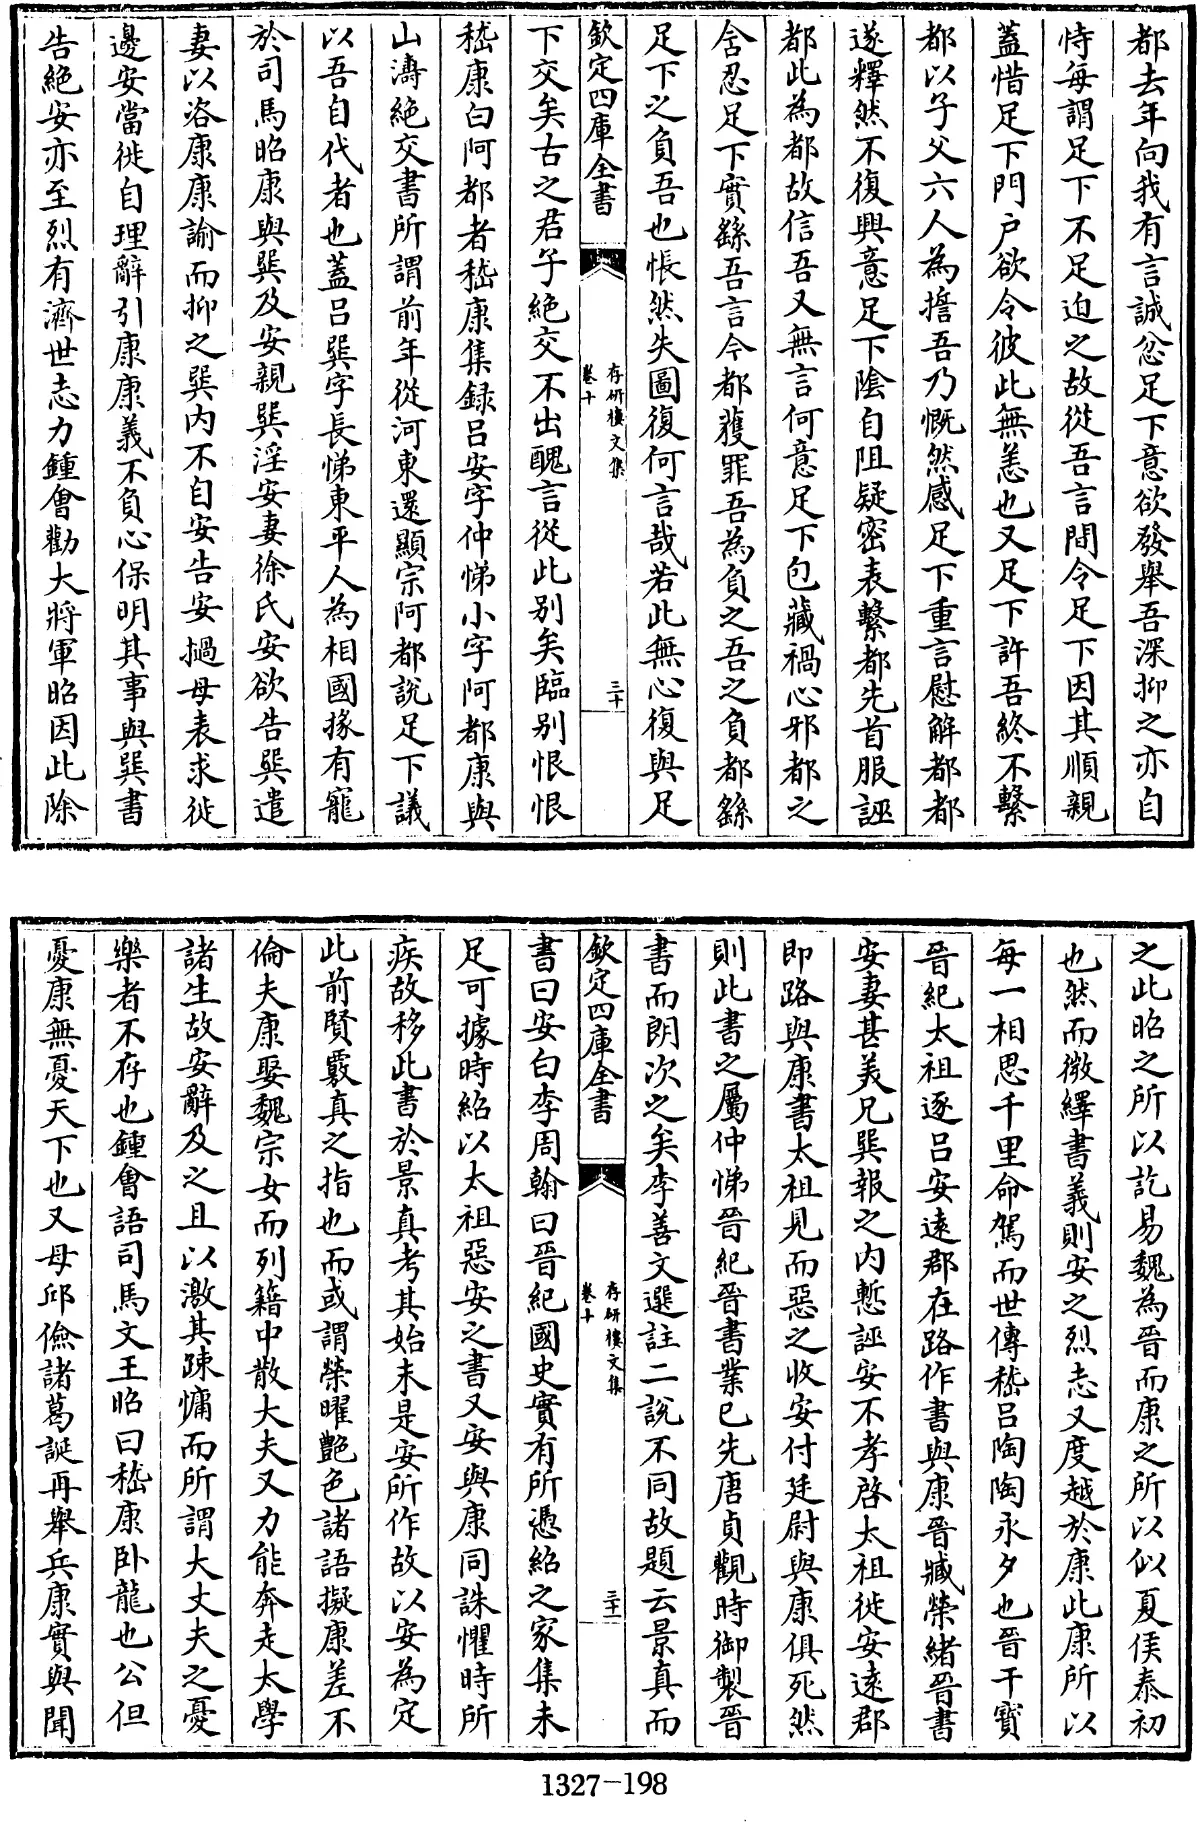 都去年向我有言誠忿足下意欲發舉吾深抑之亦自
恃每謂足下不足迫之故從吾言間令足下因其順親
蓋惜足下門戶欲令彼此無恙也又足下許吾終不繫
都以子父六人為擔吾乃慨然感足下重言慰解都都
遂釋然不復興意足下陰自阻疑密表繫都先首服誣
都此為都故信吾又無言何意足下包藏禍心邪都之
含忍足下實繇吾言今都䕶罪吾為負之吾之負都繇
足下之負吾也悵然失圖復何言哉若此無心復與足
欽定四庫全書
存研樓文集
卷十
三十
下交矣古之君子絶交不出醜言從此别矣臨别恨恨
嵇康白阿都者嵇康集録呂安字仲悌小字阿都康與
山濤絶交書所謂前年從河東還顯宗阿都說足下議
以吾自代者也蓋呂巽字長悌東平人為相國掾有寵
於司馬昭康與巽及安親巽淫安妻徐氏安欲告巽遣
妻以洛康康諭而抑之巽内不自安告安撾母表求徙
邊安當徙自理辭引康康義不負心保明其事與巽書
告絶安亦至烈有濟世志力鍾會勸大將軍昭因此除
之此昭之所以訖易魏為晉而康之所以似夏侯泰初
也然而微繹書義則安之烈志又度越於康此康所以
每一相思千里命駕而世傳嵇呂陶陶永夕也晉干寶
晉紀太祖逐呂安遠郡在路作書與康晉臧榮緒晉書
安妻甚美兄巽報之内慙誣安不孝啓太祖徙安遠郡
即路與康書太祖見而惡之收安付廷尉與康俱死然
則此書之屬仲悌晉紀晉書業已先唐貞觀時御製晉
書而朗次之矣李善文選註二說不同故題云景真而
欽定四庫全書
存研樓文集
卷十
三十一
書曰安白李周翰曰晉紀國史實有所憑紹之家集未
足可據時紹以太祖惡安之書又安與康同誅懼時所
疾故移此書於景真考其始末是安所作故以安為定
此前賢覈真之指也而或謂榮曜艷色諸語擬康差不
倫夫康娶魏宗女而列籍中散大夫又力能奔走太學
諸生故安辭及之且以激其踈慵而所謂大丈夫之憂
樂者不存也鍾會語司馬文王昭曰嵇康卧龍也公但
憂康無憂天下也又母邱儉諸葛誕再舉兵康實與聞
1327-198